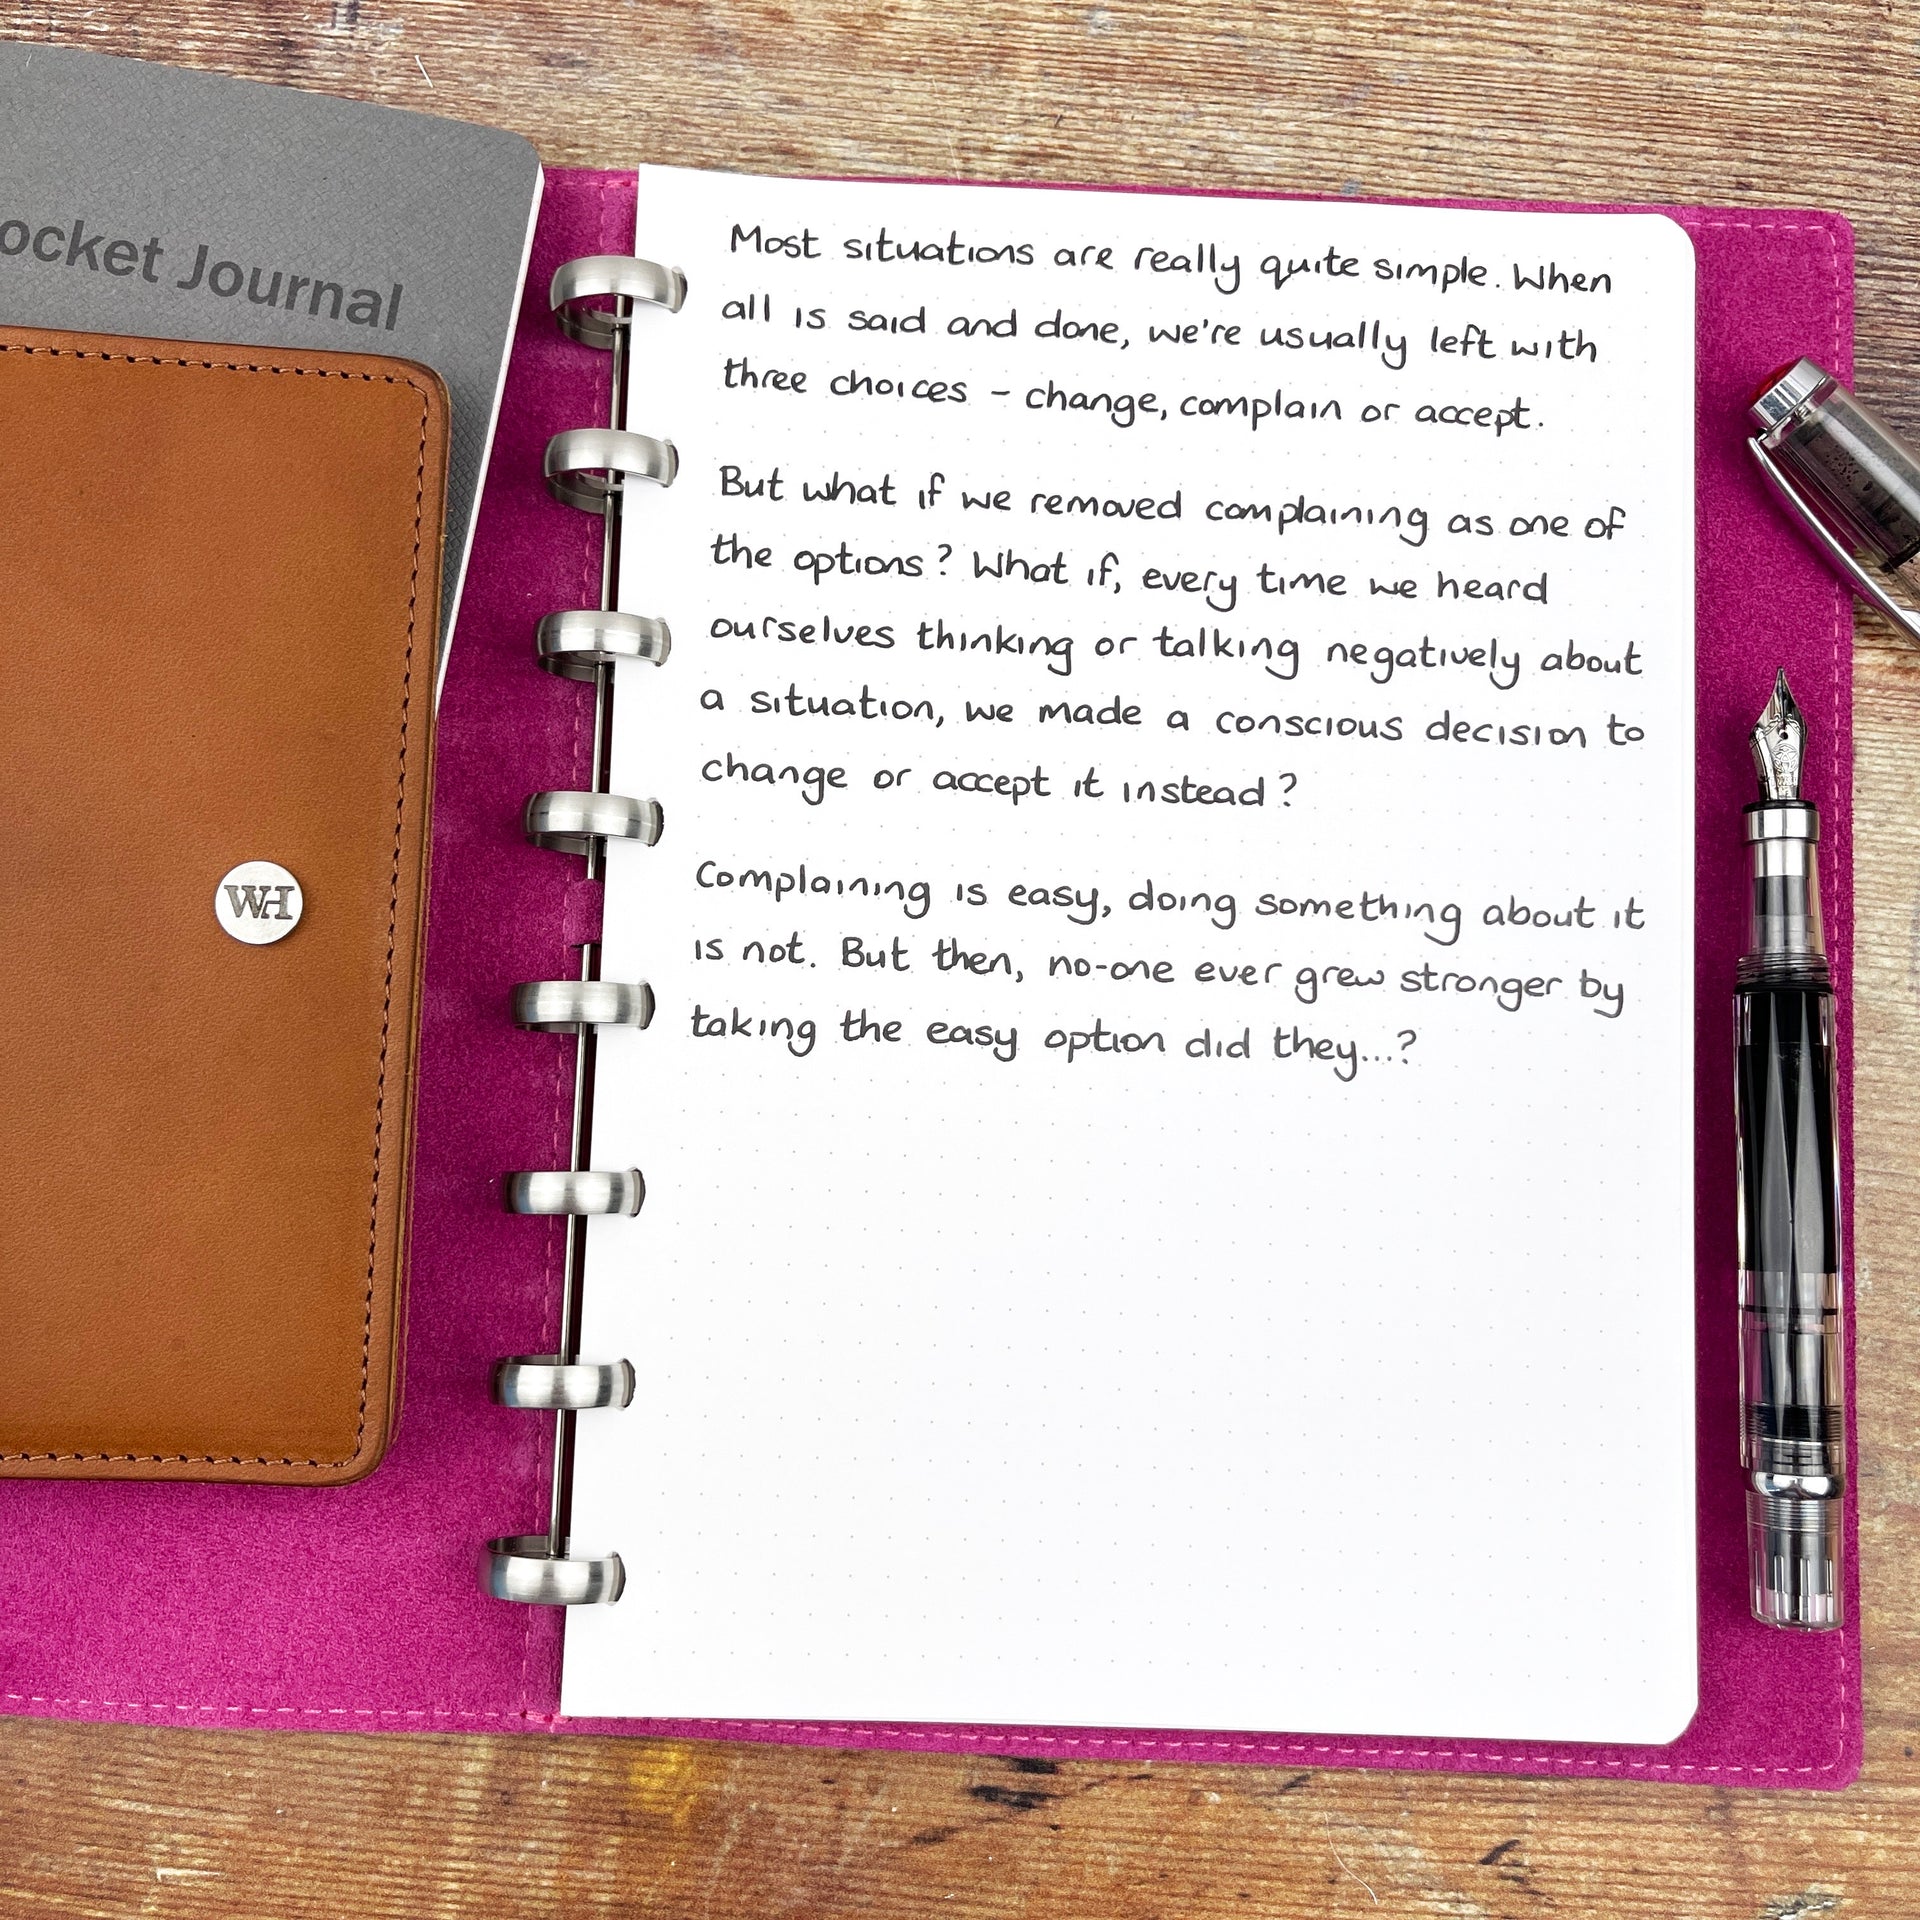 ocket Journal
WH
Most situations are really quite simple. When
all is said and done, we're usually left with
three choices - change, complain or accept.
But what if we removed complaining as one of
the options? What if, every time we heard
ourselves thinking or talking negatively about
a situation, we made a conscious decision to
change or accept it instead?
Complaining is easy, doing something about it
is not. But then, no-one ever grew stronger by
taking the easy option did they...?